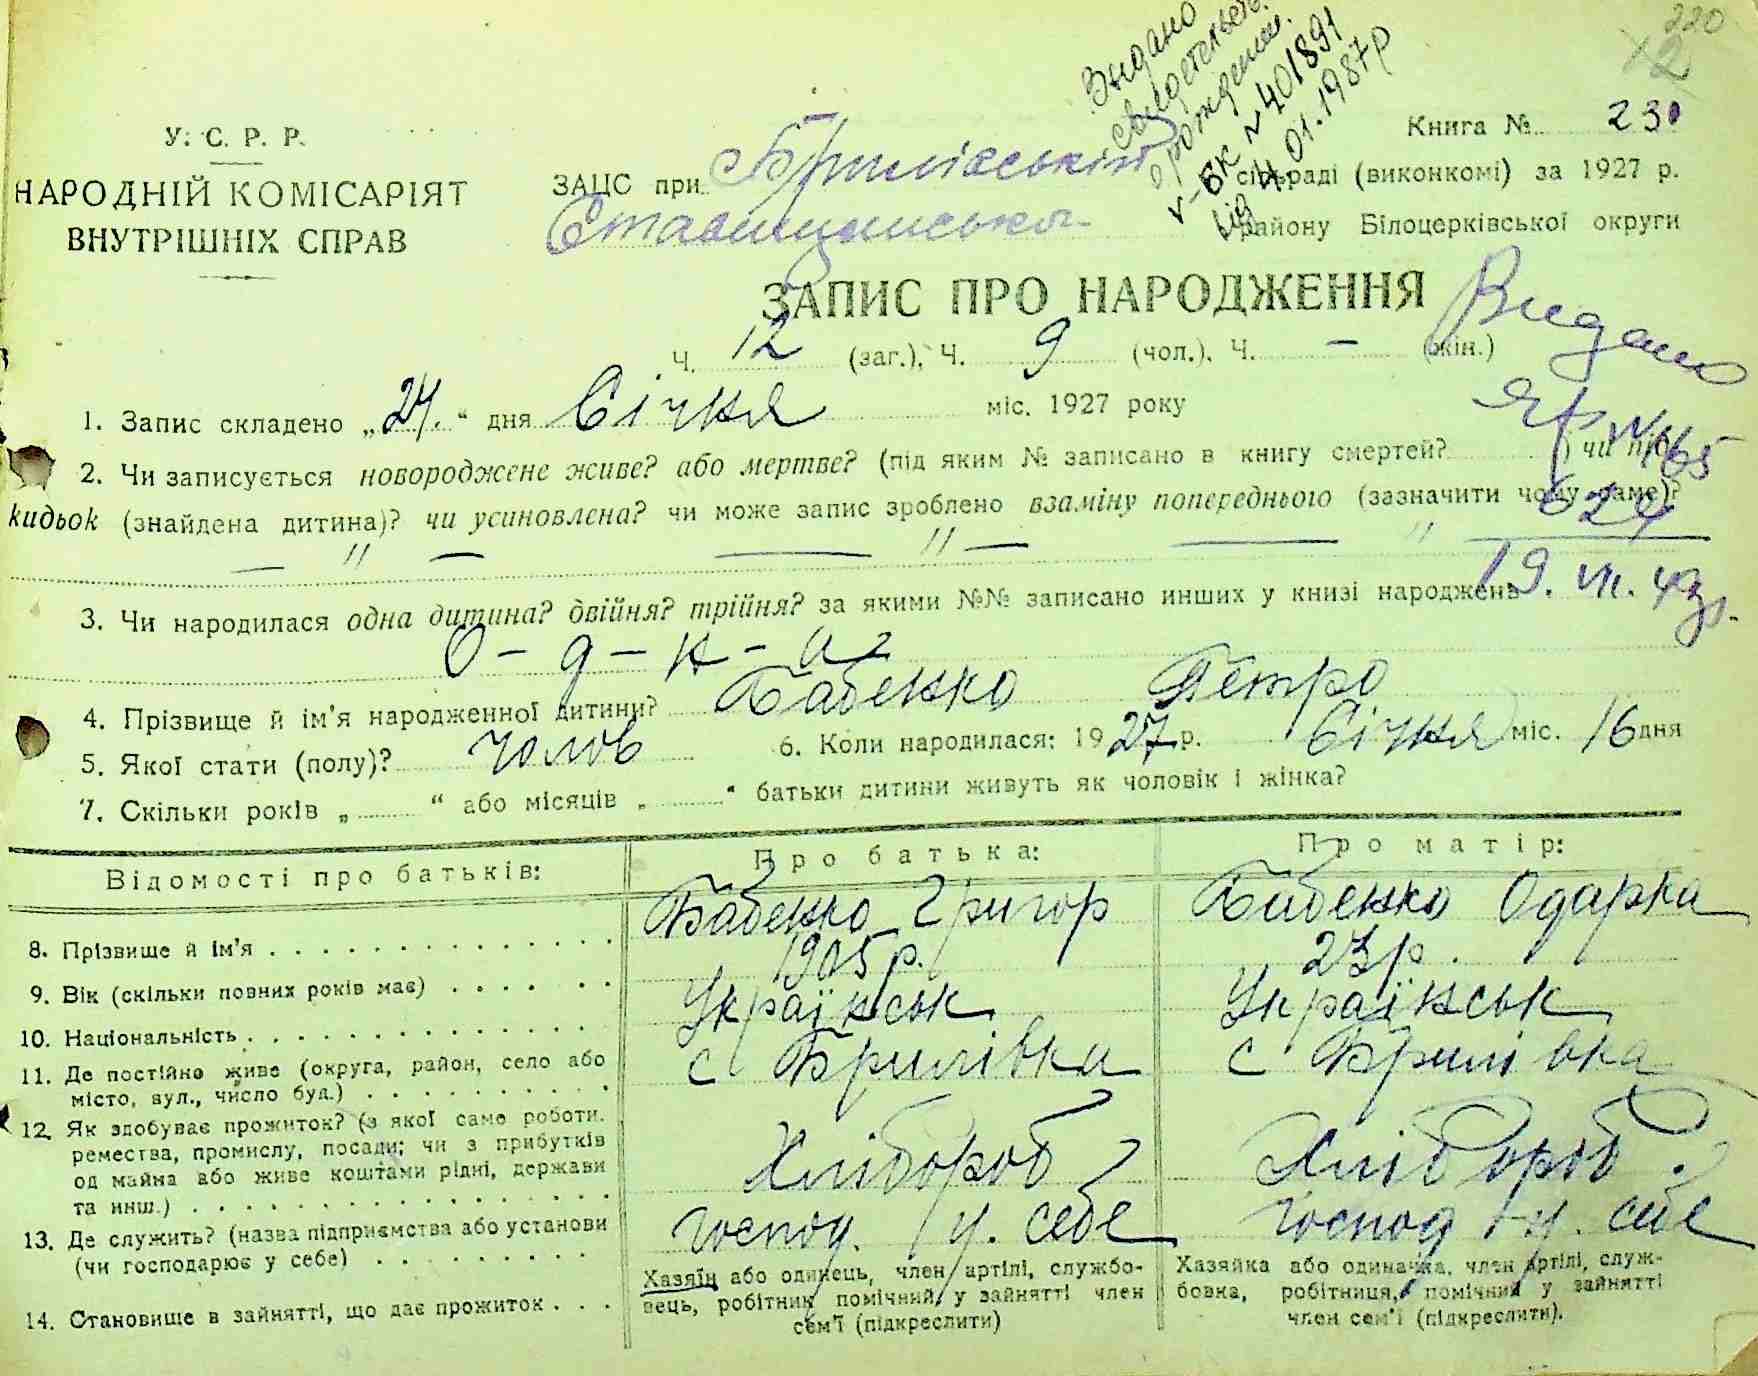 220
Выдано
свидетельст.
о рождении.
V-БК № 401891
від 4. 01. 1987 р
У. С. Р. Р.
НАРОДНІЙ КОМІСАРІЯТ
ВНУТРІШНІХ СПРАВ
Книга № 230
ЗАЦС при Брилівській сільраді (виконкомі) за 1927 р.
Ставищанського району Білоцерківської округи
ЗАПИС ПРО НАРОДЖЕННЯ
Ч. 12 (заг.), Ч. 9 (чол.), Ч. – (жін.)
Видано
1. Запис складено „24.“ дня Січня міс. 1927 року
2. Чи записується новороджене живе? або мертве? (під яким № записано в книгу смертей? ) чи під-
кидьок (знайдена дитина)? чи усиновлена? чи може запис зроблено взаміну попереднього (зазначити чому саме)?
— " — — " — — "
19. VII. 43р.
3. Чи народилася одна дитина? двійня? трійня? за якими №№ записано инших у книзі народжень
О - д - н - а
4. Прізвище й ім'я народженної дитини? Бабенко Петро
5. Якої стати (полу)? чолов 6. Коли народилася: 1927 р. Січня міс. 16 дня
7. Скільки років „ “ або місяців „ “ батьки дитини живуть як чоловік і жінка?
Відомості про батьків: Про батька: Про матір:
8. Прізвище й ім'я . . . Бабенко Григор Бабенко Одарка
9. Вік (скільки повних років має) . . . 1905 р. 23 р.
10. Національність . . . Українськ Українськ
11. Де постійно живе (округа, район, село або
місто, вул., число буд.) . . . с Брилівка с Брилівка
12. Як здобуває прожиток? (з якої саме роботи,
ремества, промислу, посади; чи з прибутків
од майна або живе коштами рідні, держави
та инш.) . . . Хлібороб Хлібороб
13. Де служить? (назва підприємства або установи
(чи господарює у себе) . . . господ. у. себе господ у. себе
14. Становище в зайнятті, що дає прожиток . . .
Хазяїн або одинець, член артілі, службо-
вець, робітник помічний у зайнятті член
сем'ї (підкреслити)
Хазяйка або одиначка, член артілі, служ-
бовка, робітниця, помічний у зайнятті
член сем'ї (підкреслити).